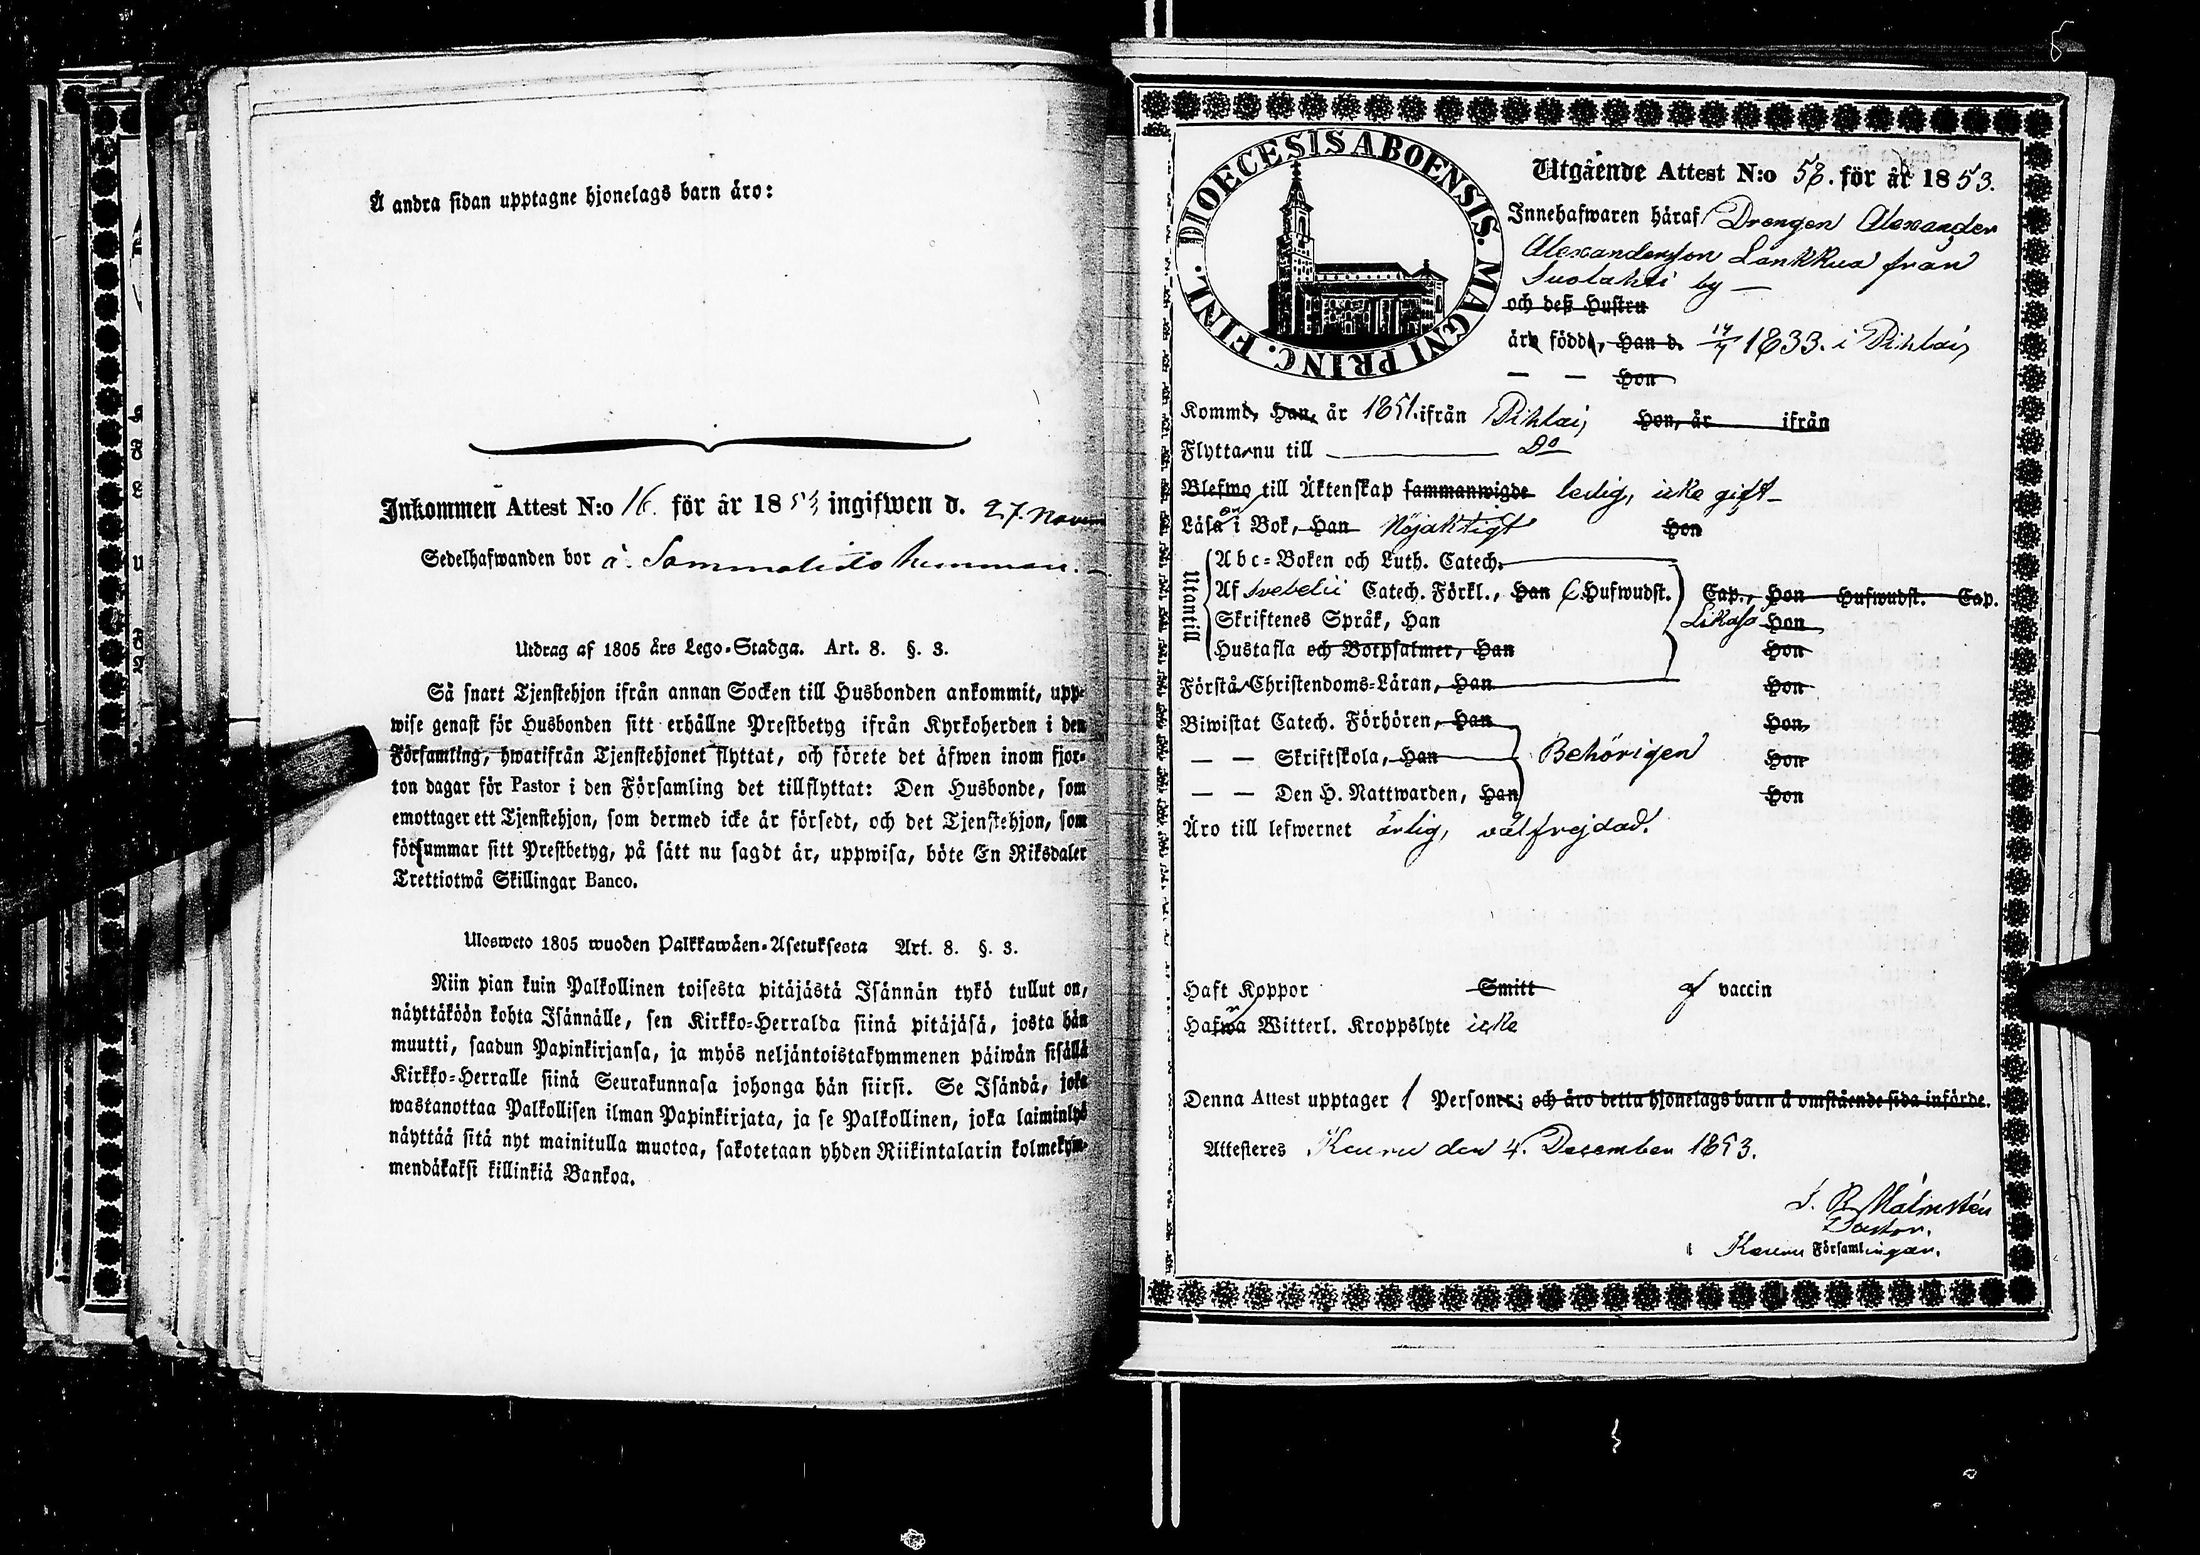 Å andra sidan upptagne hjonelags barn äro:
Inkommen Attest N:o 16. för år 1853 ingifwen d. 27. Novem
Sedelhafwanden bor å Sammalisto hemman.
Utdrag af 1805 års Lego-Stadga. Art. 8. §. 3.
Så snart Tjenstehjon ifrån annan Socken till Husbonden ankommit, upp-
wise genast för Husbonden sitt erhållne Prestbetyg ifrån Kyrkoherden i den
Församling, hwarifrån Tjenstehjonet flyttat, och förete det äfwen inom fjor-
ton dagar för Pastor i den Församling det tillflyttat: Den Husbonde, som
emottager ett Tjenstehjon, som dermed icke är försedt, och det Tjenstehjon, som
försummar sitt Prestbetyg, på sätt nu sagdt är, uppwisa, böte En Riksdaler
Trettiotwå Skillingar Banco.
Ulosweto 1805 wuoden Palkkawäen-Asetuksesta Art. 8. §. 3.
Niin pian kuin Palkollinen toisesta pitäjästä Isännän tykö tullut on,
näyttäköön kohta Isännälle, sen Kirkko-Herralda siinä pitäjäsä, josta hän
muutti, saadun Papinkirjansa, ja myös neljäntoistakymmenen päiwän sisällä
Kirkko-Herralle siinä Seurakunnasa johonga hän siirsi. Se Isändä, joka
wastanottaa Palkollisen ilman Papinkirjata, ja se Palkollinen, joka laiminlyö
näyttää sitä nyt mainitulla muotoa, sakotetaan yhden Riikintalarin kolmekym-
mendäkaksi killinkiä Bankoa.
DIOECESIS ABOENSIS. MAGNI PRINC. FINL.
Utgående Attest N:o 58. för år 1853.
Innehafwaren häraf Drengen Alexander
Alexandersson Lankkua från
Suolahti by —
och deß Hustru
äro födde, Han d. 14/7 1833. i Pihlaj,
— — Hon
Kommo, Han, år 1851. ifrån Pihlaj, Hon, år ifrån
Flytta nu till Do
Blefwo till Äktenskap sammanwigde ledig, icke gift
Läsa i Bok, Han Nöjaktigt Hon
Utantill
Abc-Boken och Luth. Catech.
Af Svebelii Catech. Förkl., Han 6 Hufwudst. Cap., Hon Hufwudst. Cap.
Skriftenes Språk, Han Likaså Hon
Hustafla och Botpsalmer, Han Hon
Förstå Christendoms-Läran, Han Hon
Biwistat Catech. Förhören, Han Hon
— — Skriftskola, Han Behörigen Hon
— — Den H. Nattwarden, Han Hon
Äro till lefwernet ärlig, välfrejdad.
Haft Koppor Smitt af vaccin
Hafwa Witterl. Kroppslyte icke
Denna Attest upptager 1 Personer; och äro detta hjonelags barn å omstående sida införde.
Attesteres Keuru den 4. December 1853.
J. R. Malmstén
Pastor.
i Keuru Församlingar.